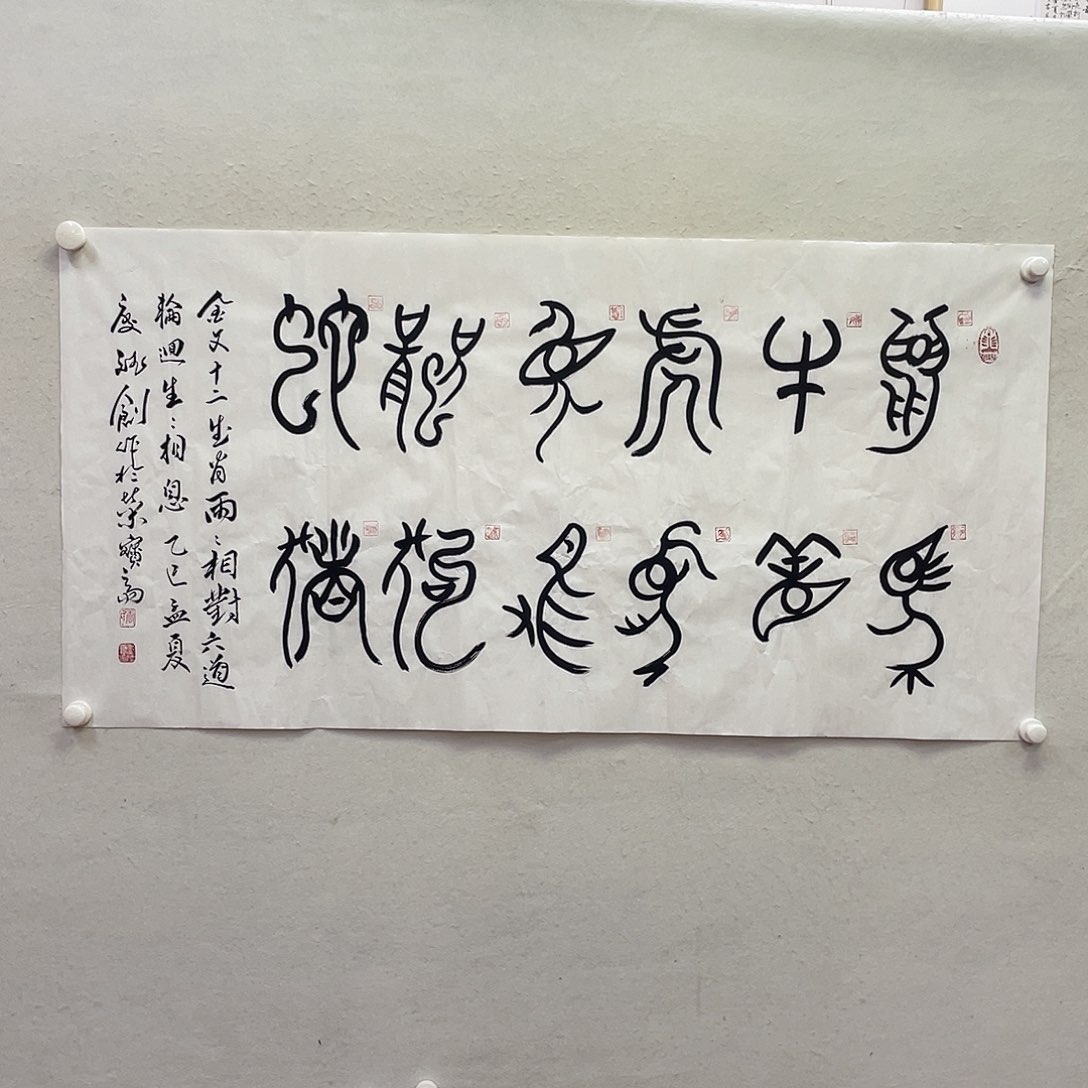 鼠牛虎兔龍蛇
馬羊猴雞狗豬
金文十二生肖兩〻相對六道
輪迴生〻相息 乙巳孟夏
創作於榮寶齋